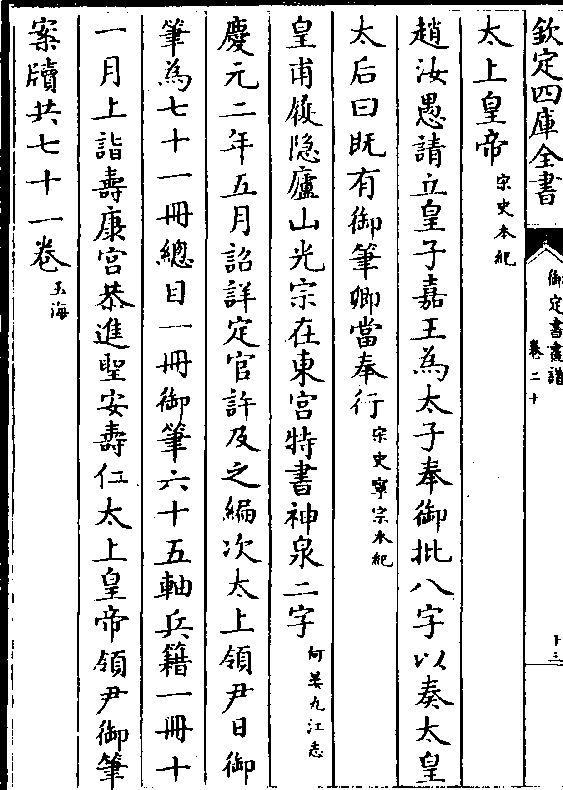 欽定四庫全書
御定書畫譜
卷二十
十三
太上皇帝宋史本紀
趙汝愚請立皇子嘉王為太子奉御批八字以奏太皇
太后曰既有御筆卿當奉行宋史寧宗本紀
皇甫履隐廬山光宗在東宮特書神泉二字何某九江志
慶元二年五月詔詳定官許及之編次太上領尹日御
筆為七十一冊總目一冊御筆六十五軸兵籍一冊十
一月上詣壽康宮恭進聖安壽仁太上皇帝領尹御筆
案牘共七十一卷玉海